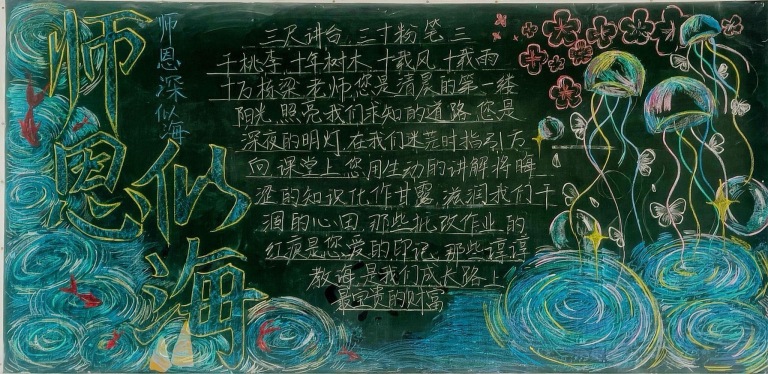 师恩似海
师恩深似海
三尺讲台三寸粉笔三
千桃李十年树木十载风十载雨
十万栋梁老师您是清晨的第一缕
阳光照亮我们求知的道路您是
深夜的明灯在我们迷茫时指引方
向课堂上您用生动的讲解将晦
涩的知识化作甘露滋润我们干
涸的心田那些批改作业的
红痕是您爱的印记那些谆谆
教诲是我们成长路上
最宝贵的财富